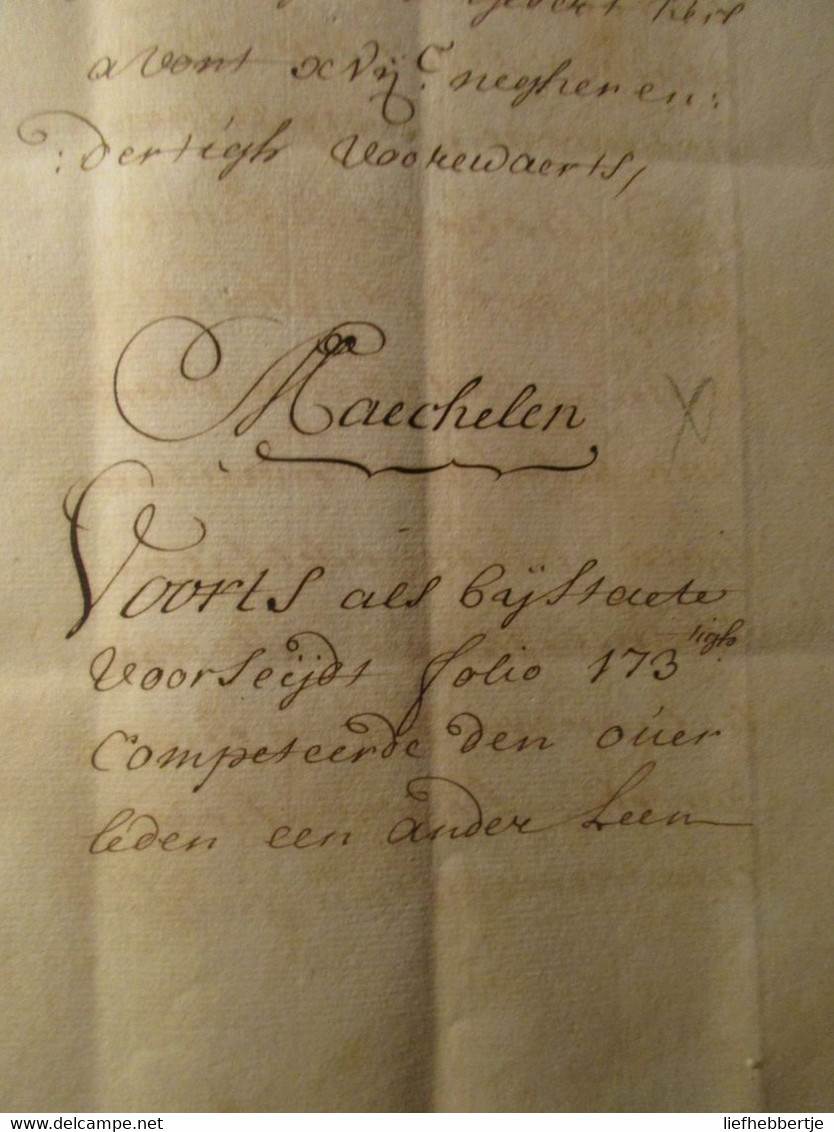 avont xvijC neghen en:
:dertigh voorewaerts,
Maechelen
X
Voorts als bij Staete
voorseijdt folio 173 tigh
Competeerde den over
leden een ander Leen
delcampe.net
liefhebbertje